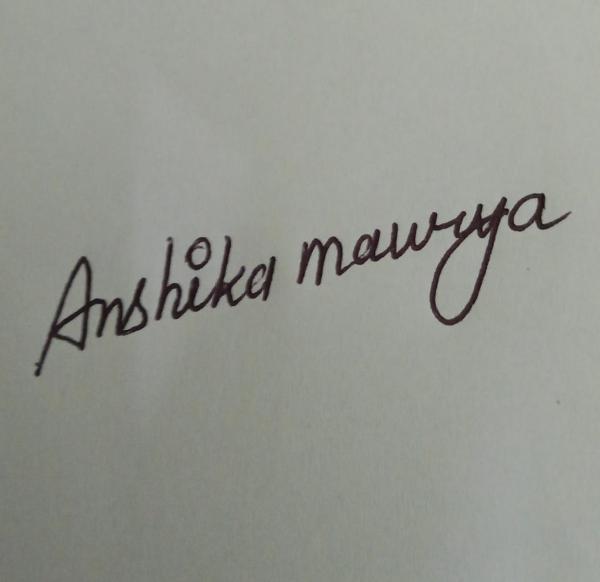 Anshika mawrya